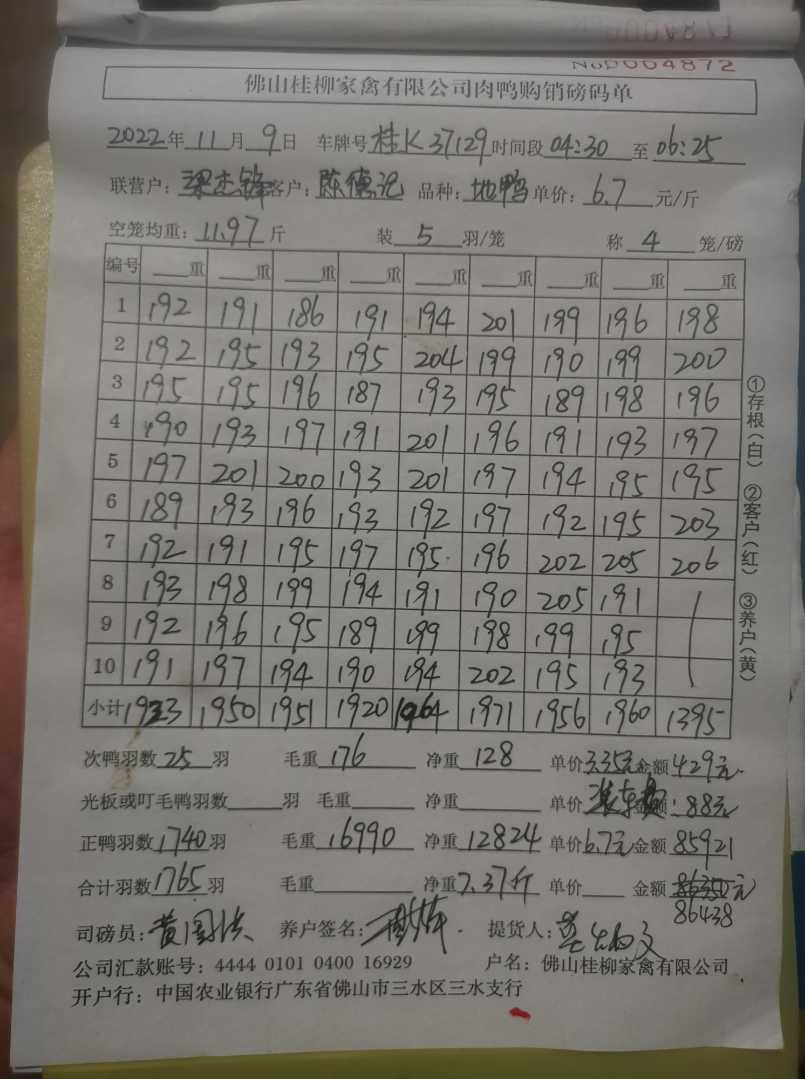 No0004872
佛山桂柳家禽有限公司肉鸭购销磅码单
2022年11月9日 车牌号桂K37129时间段04:30至06:25
联营户：梁杰锋客户：陈德记 品种：地鸭 单价：6.7元/斤
空笼均重：11.97斤 装5羽/笼 称4笼/磅
编号 重 重 重 重 重 重 重 重 重
1 192 191 186 191 194 201 199 196 198
2 192 195 193 195 204 199 190 199 200
3 195 195 196 187 193 195 189 198 196
4 190 193 197 191 201 196 191 193 197
5 197 201 200 193 201 197 194 195 195
6 189 193 196 193 192 197 192 195 203
7 192 191 195 197 195 196 202 205 206
8 193 198 199 194 191 190 205 191
9 192 196 195 189 199 198 199 195
10 191 197 194 190 194 202 195 193
小计 1923 1950 1951 1920 1964 1971 1956 1960 1395
次鸭羽数25羽 毛重176 净重128 单价3.35元金额429元
光板或叮毛鸭羽数 羽 毛重 净重 单价 装车费 金额：88元
正鸭羽数1740羽 毛重16990 净重12824 单价6.7元金额85921
合计羽数1765羽 毛重 净重7.37斤 单价 金额86350元
86438
司磅员： 养户签名： 提货人：
公司汇款账号：4444 0101 0400 16929 户名：佛山桂柳家禽有限公司
开户行：中国农业银行广东省佛山市三水区三水支行
①存根（白） ②客户（红） ③养户（黄）